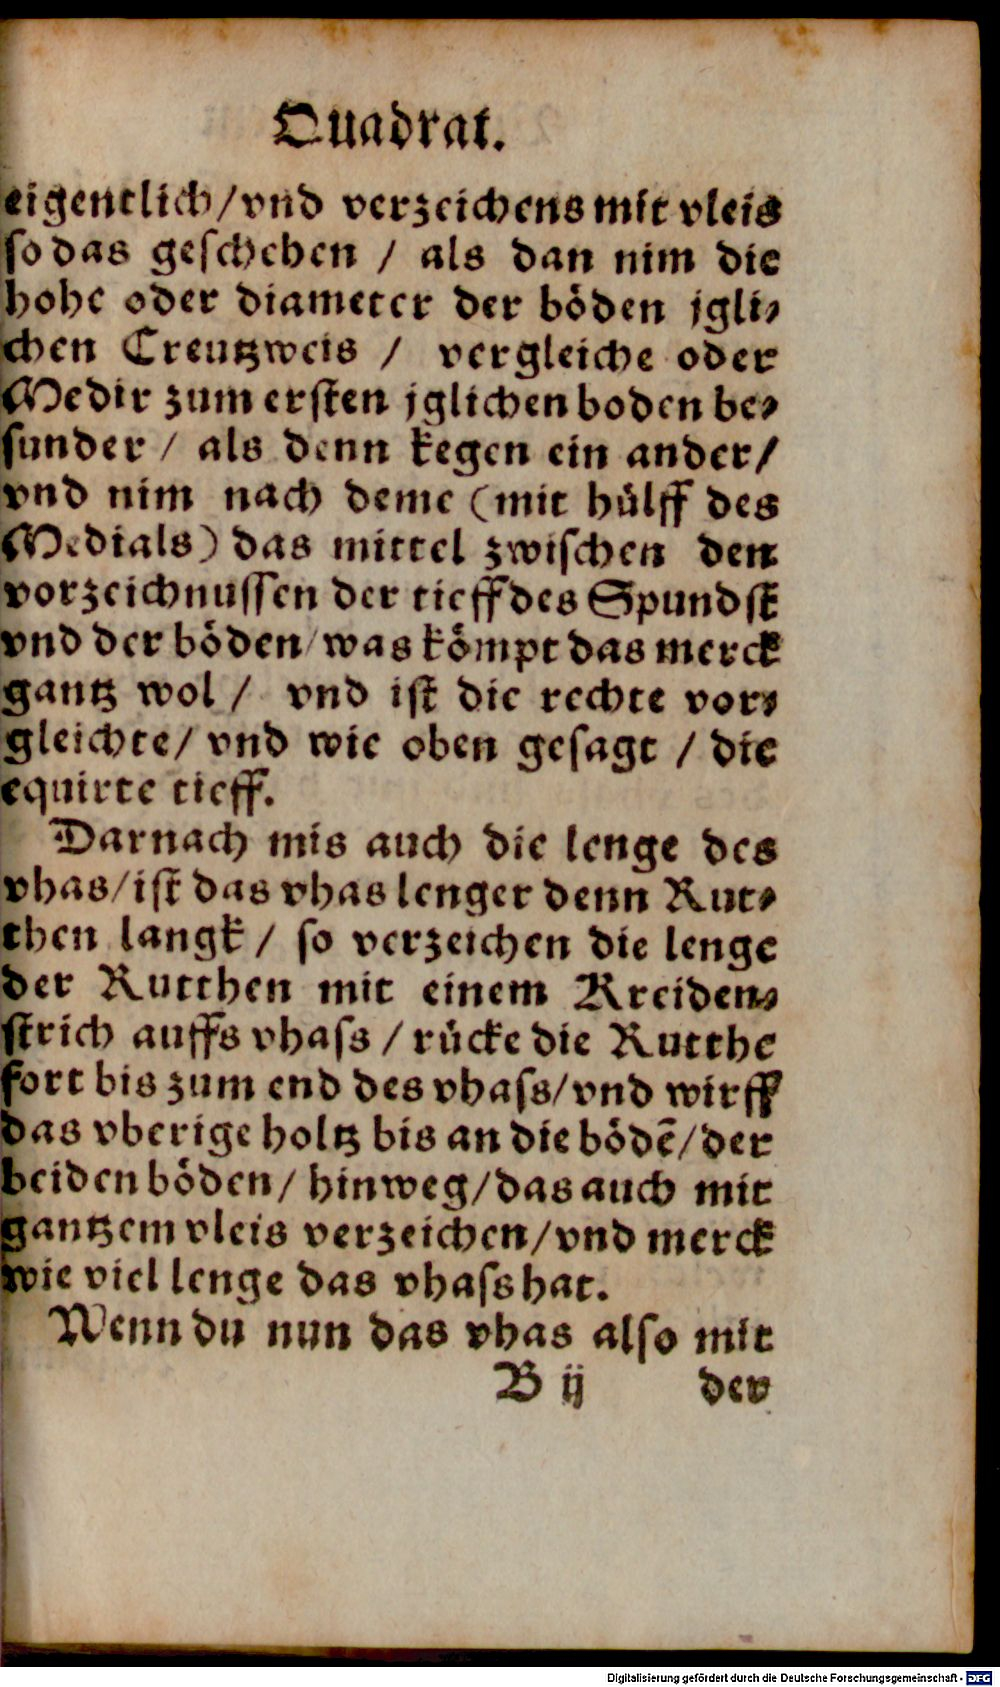 Quadrat.
eigentlich/vnd verzeichens mit vleis
so das geschehen / als dan nim die
hohe oder diameter der böden jgli⸗
chen Creutzweis / vergleiche oder
Medir zum ersten jglichen boden be⸗
sunder / als denn kegen ein ander/
vnd nim nach deme (mit hülff des
Medials) das mittel zwischen den
vorzeichnussen der tieff des Spundst
vnd der böden/was kömpt das merck
gantz wol / vnd ist die rechte vor⸗
gleichte/ vnd wie oben gesagt / die
equirte tieff.
Darnach mis auch die lenge des
vhas/ist das vhas lenger denn Rut⸗
then langk / so verzeichen die lenge
der Rutthen mit einem Kreiden⸗
strich auffs vhass / rücke die Rutthe
fort bis zum end des vhass/vnd wirff
das vberige holtz bis an die bödē/der
beiden böden/ hinweg/das auch mit
gantzem vleis verzeichen/vnd merck
wie viel lenge das vhass hat.
Wenn du nun das vhas also mit
B ij der
Digitalisierung gefördert durch die Deutsche Forschungsgemeinschaft - DFG